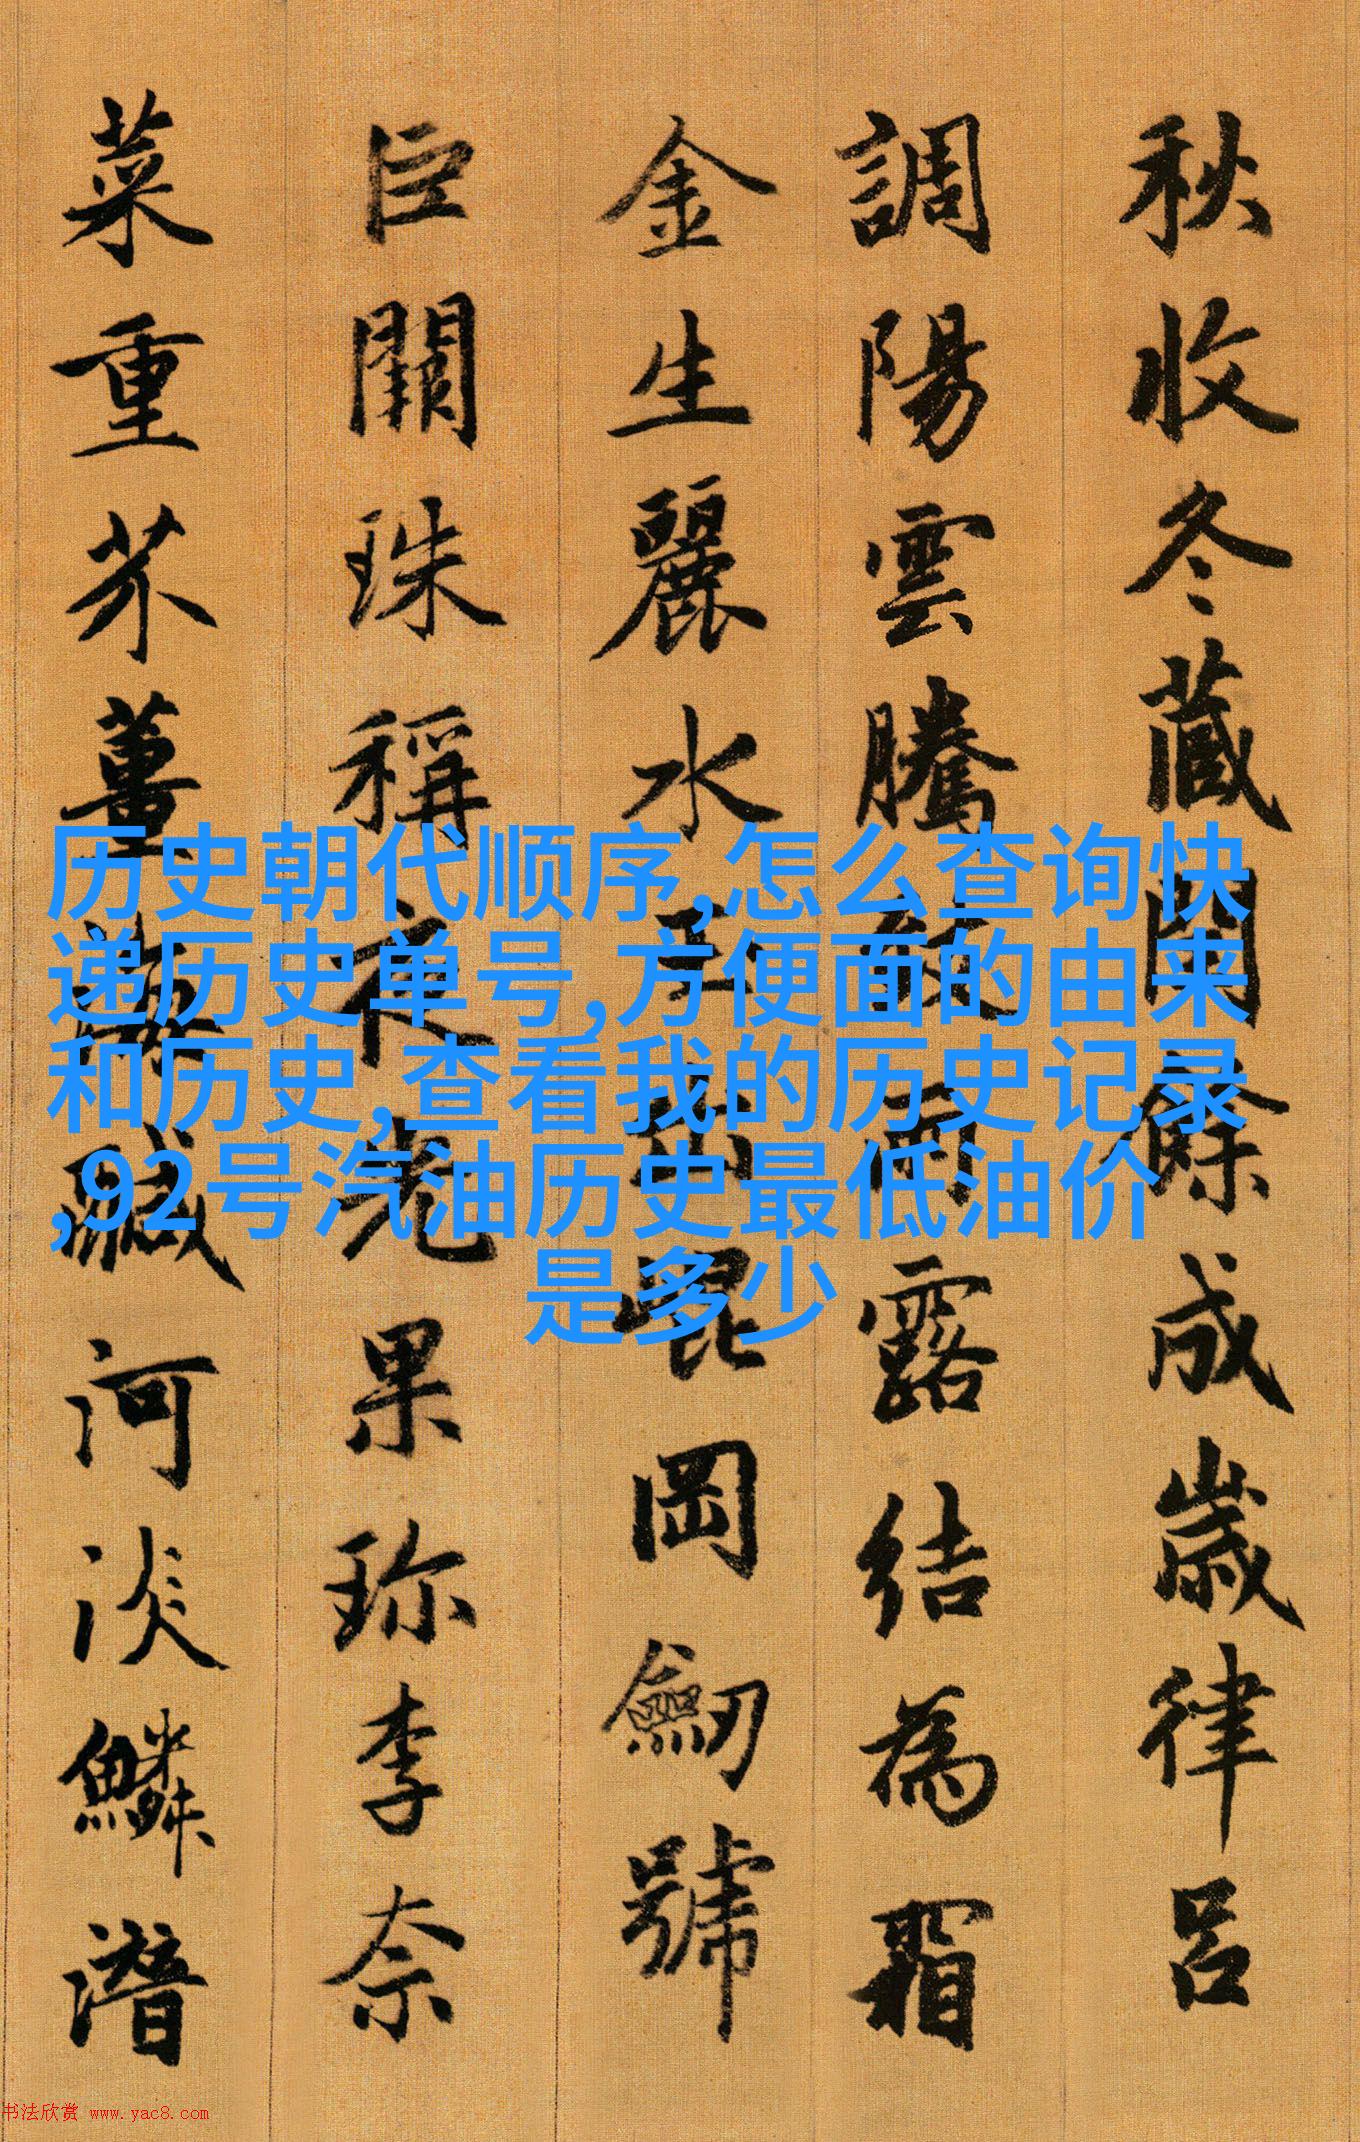 秋收冬藏閏餘成歲律呂
調陽雲騰致雨露結為霜
金生麗水玉出崐岡劒號
巨闕珠稱夜光果珎李奈
菜重芥薑海鹹河淡鱗潛
历史朝代顺序,怎么查询快
递历史单号,方便面的由来
和历史,查看我的历史记录
,92号汽油历史最低油价
是多少
书法欣赏 www.yac8.com